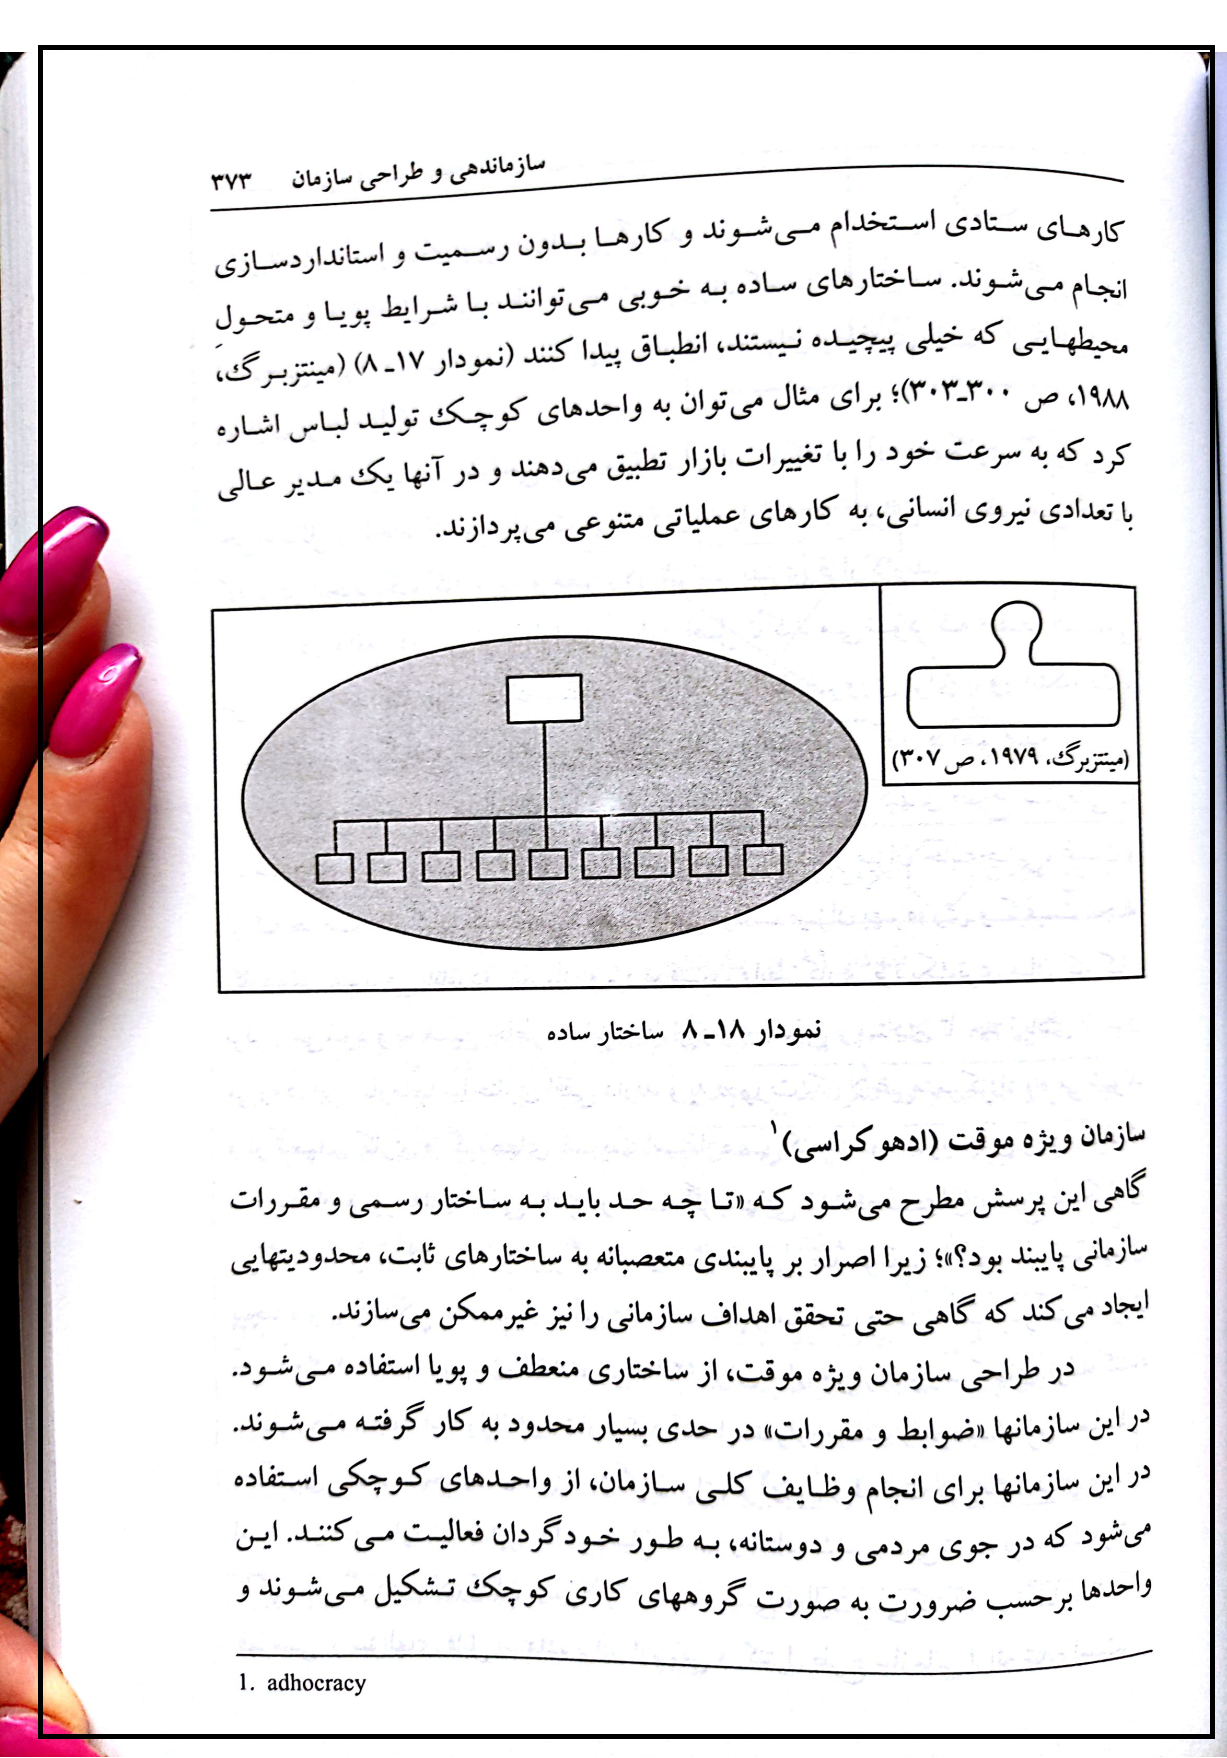 سازماندهی و طراحی سازمان ۳۷۳
کارهای ستادی استخدام می‌شوند و کارها بدون رسمیت و استانداردسازی
انجام می‌شوند. ساختارهای ساده به خوبی می‌توانند با شرایط پویا و متحول
محیطهایی که خیلی پیچیده نیستند، انطباق پیدا کنند (نمودار ۱۷ـ۸) (مینتزبرگ،
۱۹۸۸، ص ۳۰۰ـ۳۰۳)؛ برای مثال می‌توان به واحدهای کوچک تولید لباس اشاره
کرد که به سرعت خود را با تغییرات بازار تطبیق می‌دهند و در آنها یک مدیر عالی
با تعدادی نیروی انسانی، به کارهای عملیاتی متنوعی می‌پردازند.
(مینتزبرگ، ۱۹۷۹، ص ۳۰۷)
نمودار ۱۸ـ۸ ساختار ساده
سازمان ویژه موقت (ادهوکراسی)۱
گاهی این پرسش مطرح می‌شود که «تا چه حد باید به ساختار رسمی و مقررات
سازمانی پایبند بود؟»؛ زیرا اصرار بر پایبندی متعصبانه به ساختارهای ثابت، محدودیتهایی
ایجاد می‌کند که گاهی حتی تحقق اهداف سازمانی را نیز غیرممکن می‌سازند.
در طراحی سازمان ویژه موقت، از ساختاری منعطف و پویا استفاده می‌شود.
در این سازمانها «ضوابط و مقررات» در حدی بسیار محدود به کار گرفته می‌شوند.
در این سازمانها برای انجام وظایف کلی سازمان، از واحدهای کوچکی استفاده
می‌شود که در جوی مردمی و دوستانه، به طور خودگردان فعالیت می‌کنند. این
واحدها برحسب ضرورت به صورت گروههای کاری کوچک تشکیل می‌شوند و
1. adhocracy